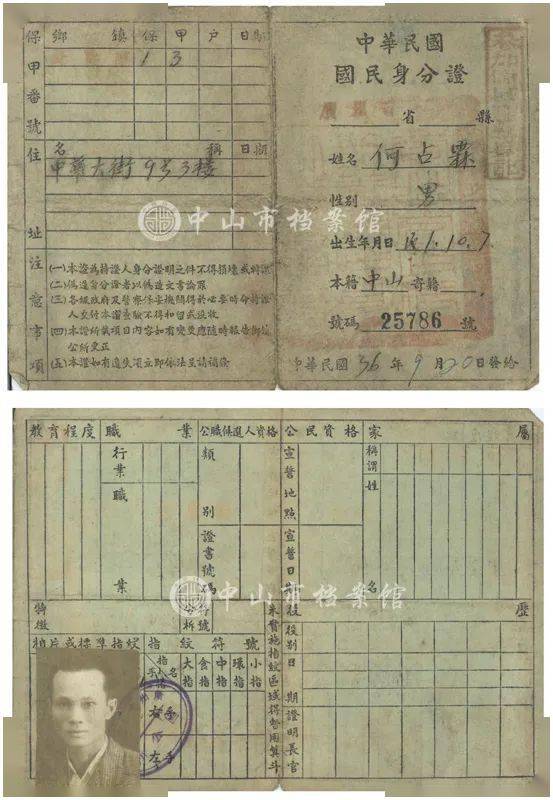 中華民國
國民身分證
省 縣
姓名 何占霖
性別 男
出生年月日 民1.10.7
本籍 中山 寄籍
號碼 25786 號
中華民國 36 年 9 月 20 日發給
保甲番號
鄉 鎮 保 甲 戶 日期
1 3
住址
名 稱 日期
中華大街9号3樓
注意事項
(一)本證為持證人身分證明之件不得損壞或轉讓
(二)偽造身分證者以偽造文書論罪
(三)各級政府及警察保安機關得於必要時命持證
人交付本證查驗不得扣留或沒收
(四)本證所載項目內容如有變更應隨時報告鄉鎮
公所更正
(五)本證如有遺失項立即依法呈請補發
中山市档案馆
教育程度 職業 公職候選人資格 公民資格 家屬
行業
職業
類別
證書號碼
宣誓地點
宣誓日期
稱謂
姓名
中山市档案馆
特徵
箕斗符號
相片或標準指紋 指紋符號
指名
手別
大指
食指
中指
環指
小指
右手
左手
未實施指紋區域得暫用箕斗
役歷
役別
日期
證明長官